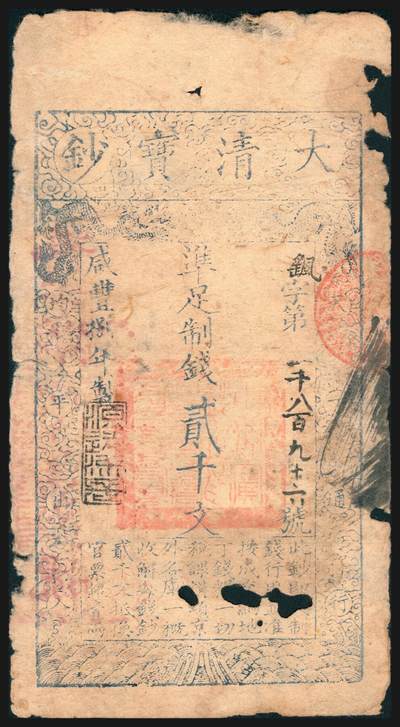 大清寶鈔
字第一千八百九十六號
準足制錢貳千文
咸豐捌年製
通行
平出入
此鈔即代制
錢行用並准
按成交納地
丁錢糧一切
稅課捐項京
外各庫一概
收解每鈔
貳千文抵換
官票銀